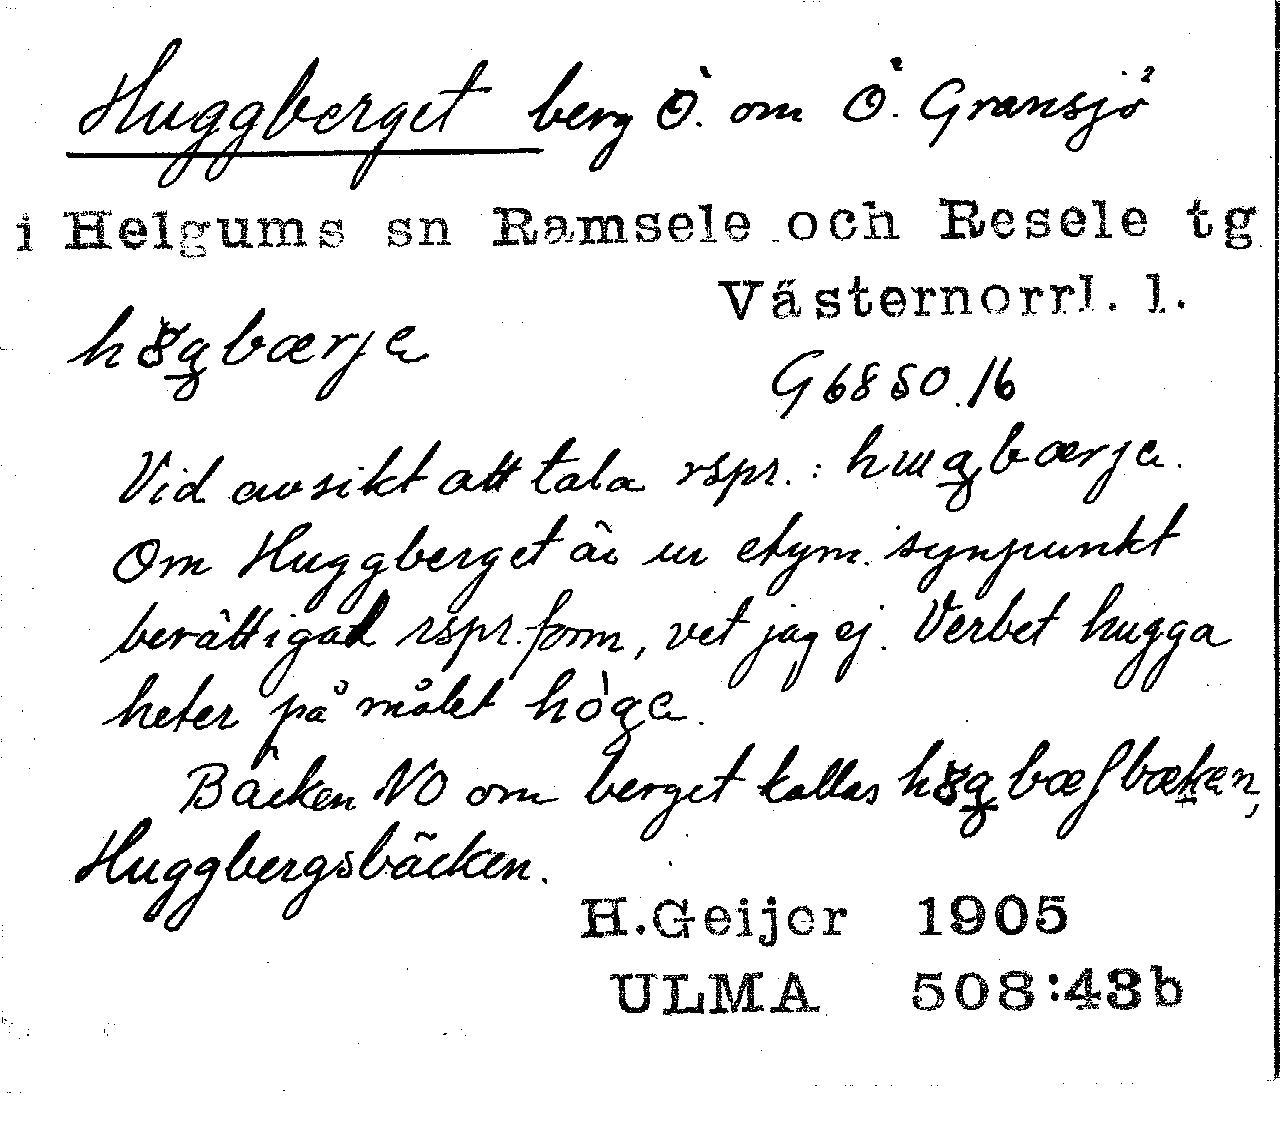 Huggberget berg Ö. om Ö. Gransjö
i Helgums sn Ramsele och Resele tg
Västernorrl. l.
høgbærje
G 6850.16
Vid avsikt att tala rspr.: hɯgbærje.
Om Huggberget är ur etym. synpunkt
berättigad rspr. form, vet jag ej. Verbet hugga
heter på målet hòge.
Bäcken NO om berget kallas
Huggbergsbäcken.
H.Geijer 1905
ULMA 508:43b